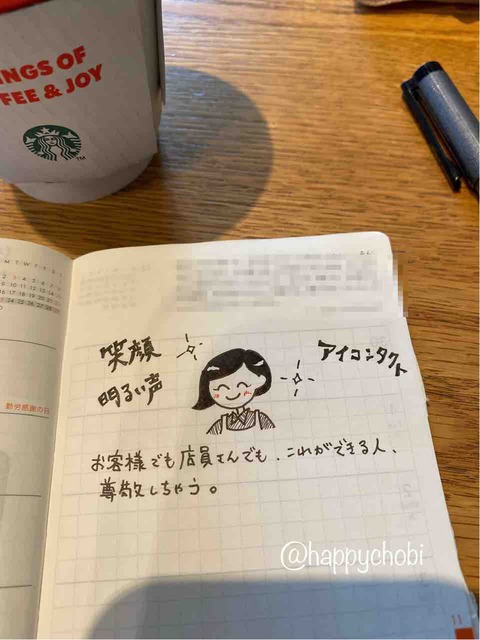 INGS OF
FEE & JOY
TM
勤労感謝の日
笑顔
明るい声
アイコンタクト
お客様でも店員さんでも、これができる人、
尊敬しちゃう。
@happychobi
11